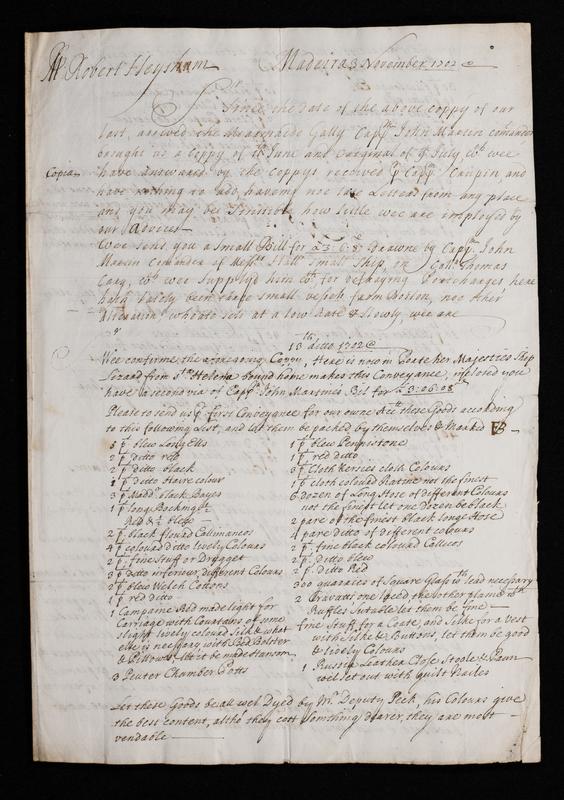 Mr. Robert Heysham Madeira 3 November 1702
Sr.
Since the date of the above coppy of our
last, arrived the Mearmaide Gally Capt. John Martin comander
brought us a Coppy of June and Original of 9 July wch. wee
Copia
have answeard by the Coppys received p Capt.
have nothing to add, having noe late Letters from any place
and you may bee Sensible how little wee are imployed by
our Advices
Wee send you a Small Bill for £3:6:8 drawne by Capt. John
Martin Comander of Messrs. Small Ship, on Thomas
Cary, wch. wee supplyd him wth. for defraying Portcharges, here
hath lately been three small vessels from Boston, noe other
Alteration, whoate sels at a low Rate & Slowly, wee are
13th. ditto 1702
Wee confirme the aforegoing Coppy, Here is now in Roade her Majesties Ship
Lizard from St. Helena bound home makes this Conveyance, inclosed you
have a second via of Capt. John Martines Bil for £3:06:08
Please to send us p. first Conveyance for our owne Acct. these Goods according
to this following List, and let them be packed by themselves & Marked
5 p. blew Long Ells
2 p. ditto red
2 p. ditto black
1 p. ditto Haire colour
3 p. Madd. black Bayes
1 p. long Bocking
Red & ½ blew
2 p. black flourd Callimancos
4 p. colourd ditto lively Colours
2 p. fine Stuff or Drugget
3 p. ditto inferiour, different Colours
2 p. blew Welch Cottons
1 p. red ditto
1 Campaine Bed made light for
Carriage with Courtains of some
slight lively colourd Silk & what
else is necessary with Bed Bolster
& Pillows let it be made Hansom
3 Peuter Chamber Potts
1 p. blew Pennistone
1 p. red ditto
3 p. Cloth Kersies cloth Colours
1 p. cloth colourd Ratine not the finest
6 dozen of Long Hose of different Colours
not the finest let one dozen be black
2 pare of the finest black longe Hose
4 pare ditto of different colours
2 p. fine black colourd Callicos
2 p. ditto blew
2 p. ditto Red
300 quarries of Square Glass wth. lead necessary
2 Cravatts one laced the other plaine wth.
Ruffles Sutable let them be fine
fine Stuff for a Coate, and Silke for a Vest
with Silke & Buttons, let them be good
& lively Colours
1 Russia Leather Close Stoole & Paun
wel set out with guilt Nailes
Let these Goods be all wel Dyed by Mr. Deputy Peek, his Colours give
the best content, altho they cost something dearer, they are most
vendable